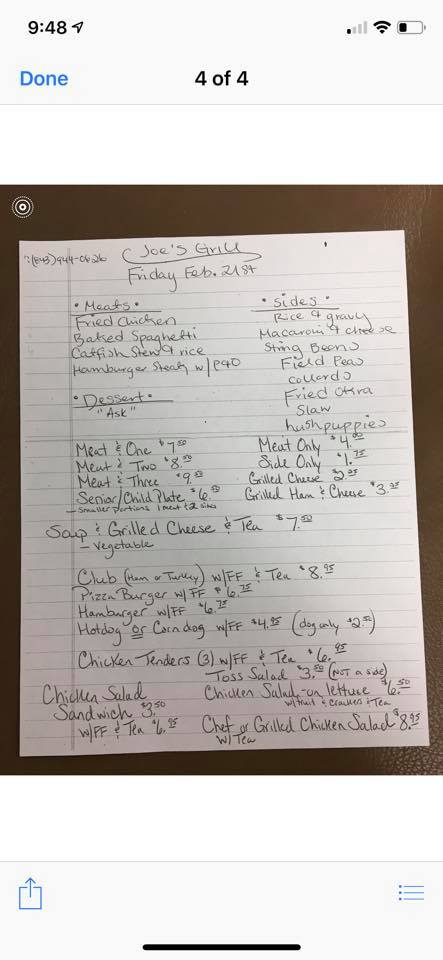 9:48
Done
4 of 4
Joe's Grill
Friday Feb. 21st
• Meats •
Fried Chicken
Baked Spaghetti
Catfish Stew & rice
Hamburger Steak w/P&O
• Dessert •
"Ask"
• Sides •
Rice & gravy
Macaroni & cheese
String Beans
Field Peas
collards
Fried Okra
Slaw
hushpuppies
Meat & One $7.50
Meat & Two $8.50
Meat & Three $9.50
Senior/Child Plate $6.50
- Smaller portions 1 meat & 2 sides
Meat Only $4.00
Side Only $1.75
Grilled Cheese $2.25
Grilled Ham & Cheese $3.25
Soup & Grilled Cheese & Tea $7.50
- Vegetable
Club (Ham or Turkey) w/FF & Tea $8.95
Pizza Burger w/FF $6.75
Hamburger w/FF $6.75
Hotdog or Corndog w/FF $4.95 (dog only $2.50)
Chicken Tenders (3) w/FF & Tea $6.95
Toss Salad $3.50 (NOT a side)
Chicken Salad Sandwich $3.50
w/FF & Tea $6.95
Chicken Salad - on lettuce $6.50
w/fruit & crackers & Tea
Chef or Grilled Chicken Salad $8.95
w/Tea